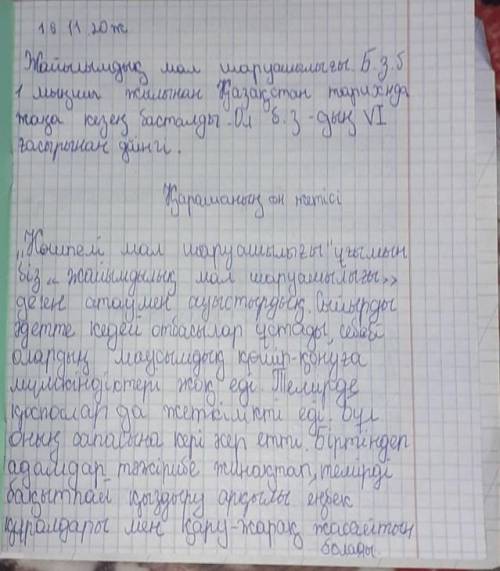 18 11 20 ж
Жайылымдық мал шаруашылығы. Б.з.б
1 мыңжыл жылынан Қазақстан тарихнда
жаңа кезең басталды. Ол б.з-дың VI
ғасырынан дейнгі.
Қараманың он жетісі
„Көшпелі мал шаруашылығы" ұғымын
біз „ жайымдылық мал шаруашылығы››
деген атаумен ауыстырдық. Сиырды
әдетте кедей отбасылар ұстады, себебі
олардың маусымдық көшіп-қонуға
мүмкіндіктері жоқ еді. Темірде
қоспалар да жеткілікті еді. Бұл
оның сапасына кері әсер етті. Біртіндеп
адамдар тәжірибе жинақтап, темірді
бақытпай қыздыру арқылы еңбек
құралдары мен қару-жарақ жасайтын
болады.